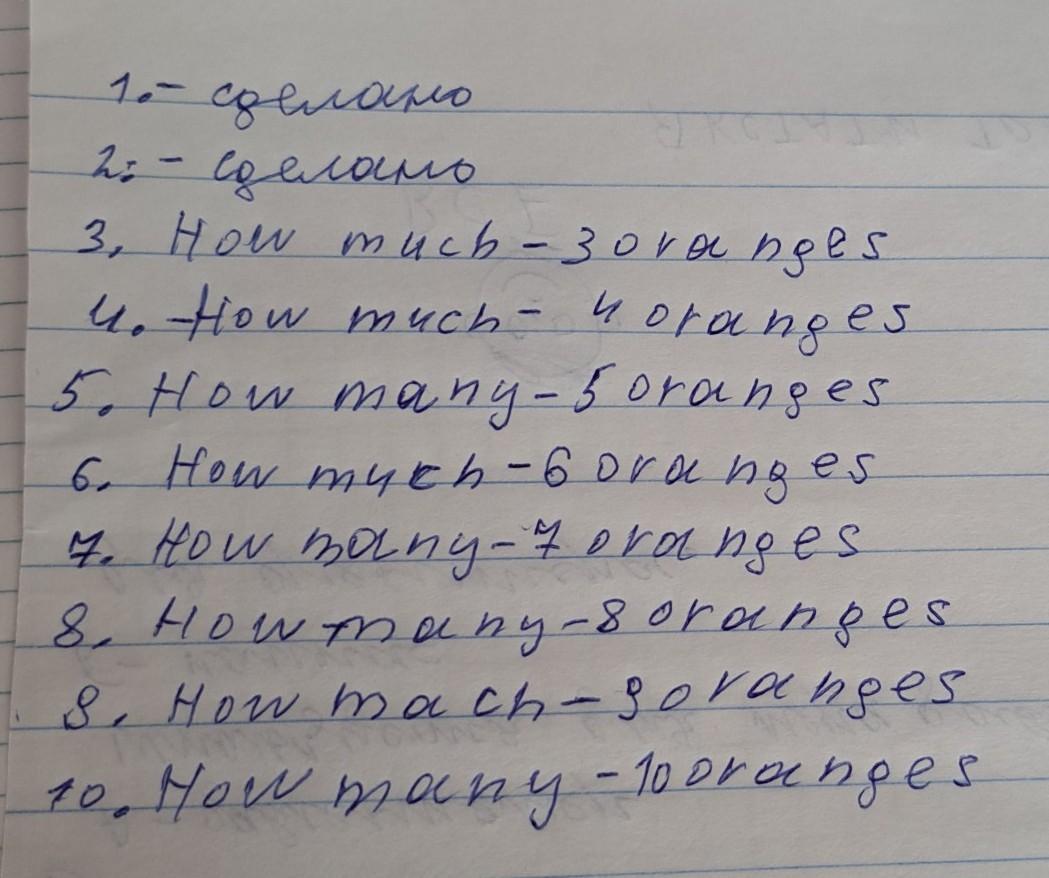 1.- сделано
2.- сделано
3. How much - 3 oranges
4. - How much - 4 oranges
5. How many - 5 oranges
6. How much - 6 oranges
7. How many - 7 oranges
8. How many - 8 oranges
9. How mach - 9 oranges
10. How many - 10 oranges